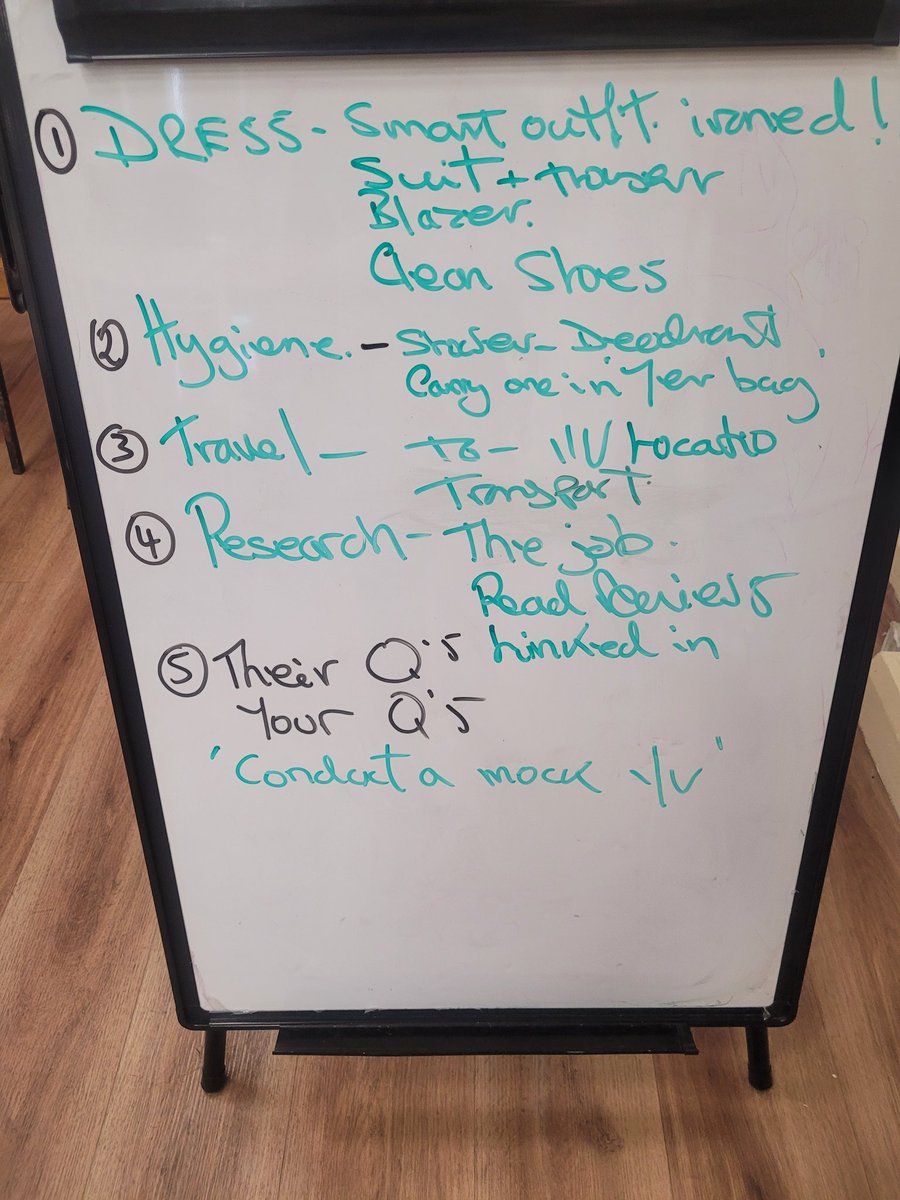 ① DRESS - Smart outfit. ironed!
Suit + trousers
Blazer.
Clean Shoes
② Hygiene. - Shower - Deodrant
Carry one in 'yer bag'
③ Travel - To - I/V Locatio
Transport.
④ Research - The job.
Read Reviews
Linked in
⑤ Their Q's
Your Q's
'Conduct a mock I/V'